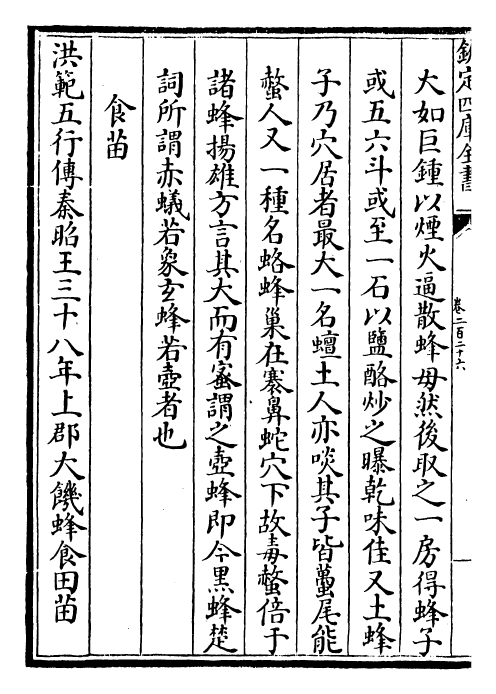 欽定四庫全書
卷二百二十六
大如巨鍾以煙火逼散蜂母然後取之一房得蜂子
或五六斗或至一石以鹽酪炒之曝乾味佳又土蜂
子乃穴居者最大一名蟺土人亦啖其子皆蠆尾能
螫人又一種名蛒蜂巢在褰鼻蛇穴下故毒螫倍于
諸蜂揚雄方言其大而有蜜謂之壺蜂即今黑蜂楚
詞所謂赤蟻若象玄蜂若壺者也
食苗
洪範五行傳秦昭王三十八年上郡大饑蜂食田苗